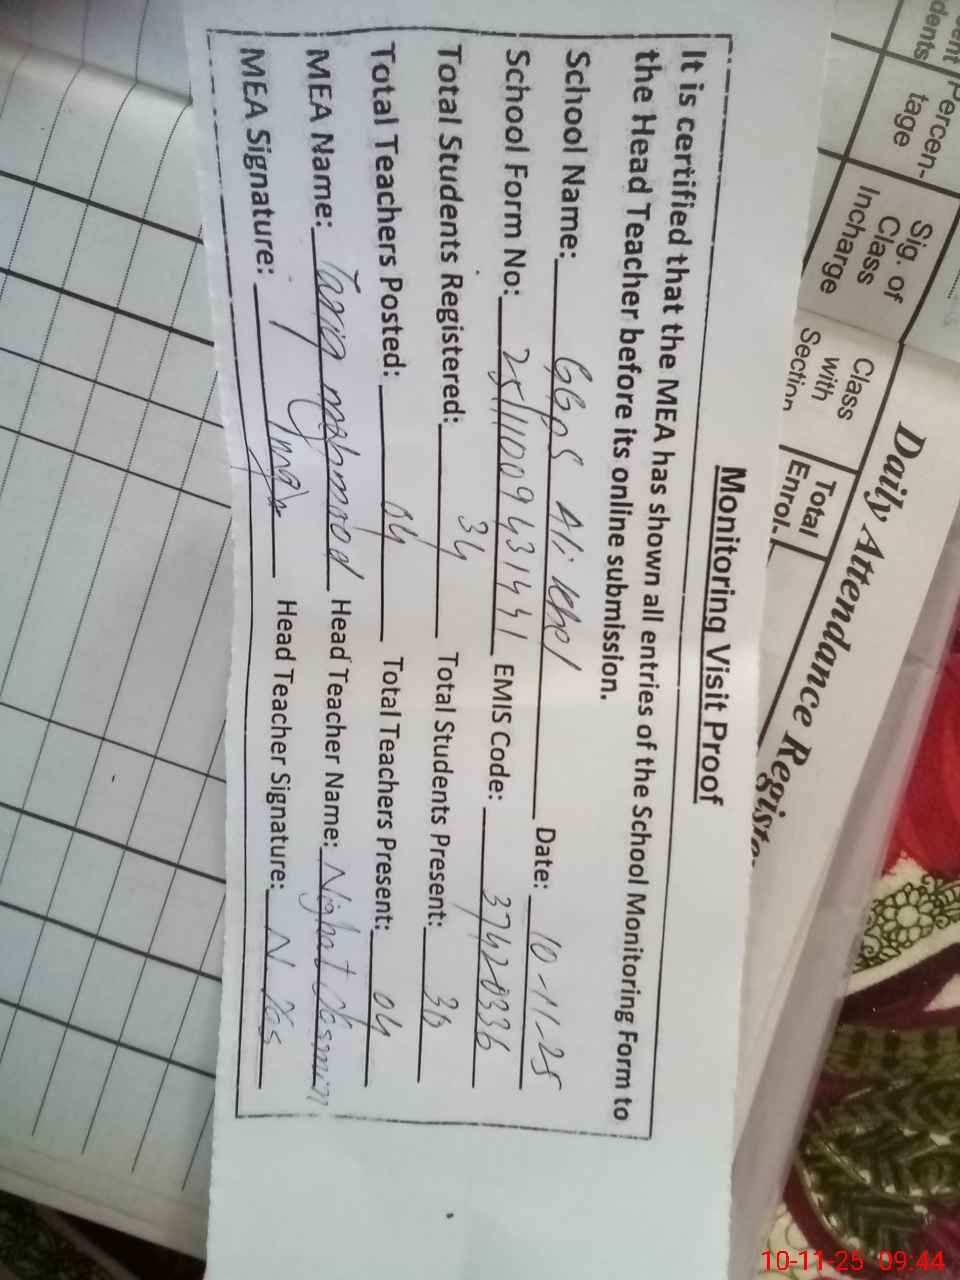 Monitoring Visit Proof
It is certified that the MEA has shown all entries of the School Monitoring Form to
the Head Teacher before its online submission.
School Name: GGPS Ali khel Date: 10-11-25
School Form No: EMIS Code: 37420336
Total Students Registered: 34 Total Students Present: 30
Total Teachers Posted: 04 Total Teachers Present: 04
MEA Name: Tariq mahmood Head Teacher Name: Nighat Yasmin
MEA Signature: Head Teacher Signature:
Daily Attendance Registe
Percen-
tage
Sig. of
Class
Incharge
Class
with
Section
Total
Enrol.
10-11-25 09:44